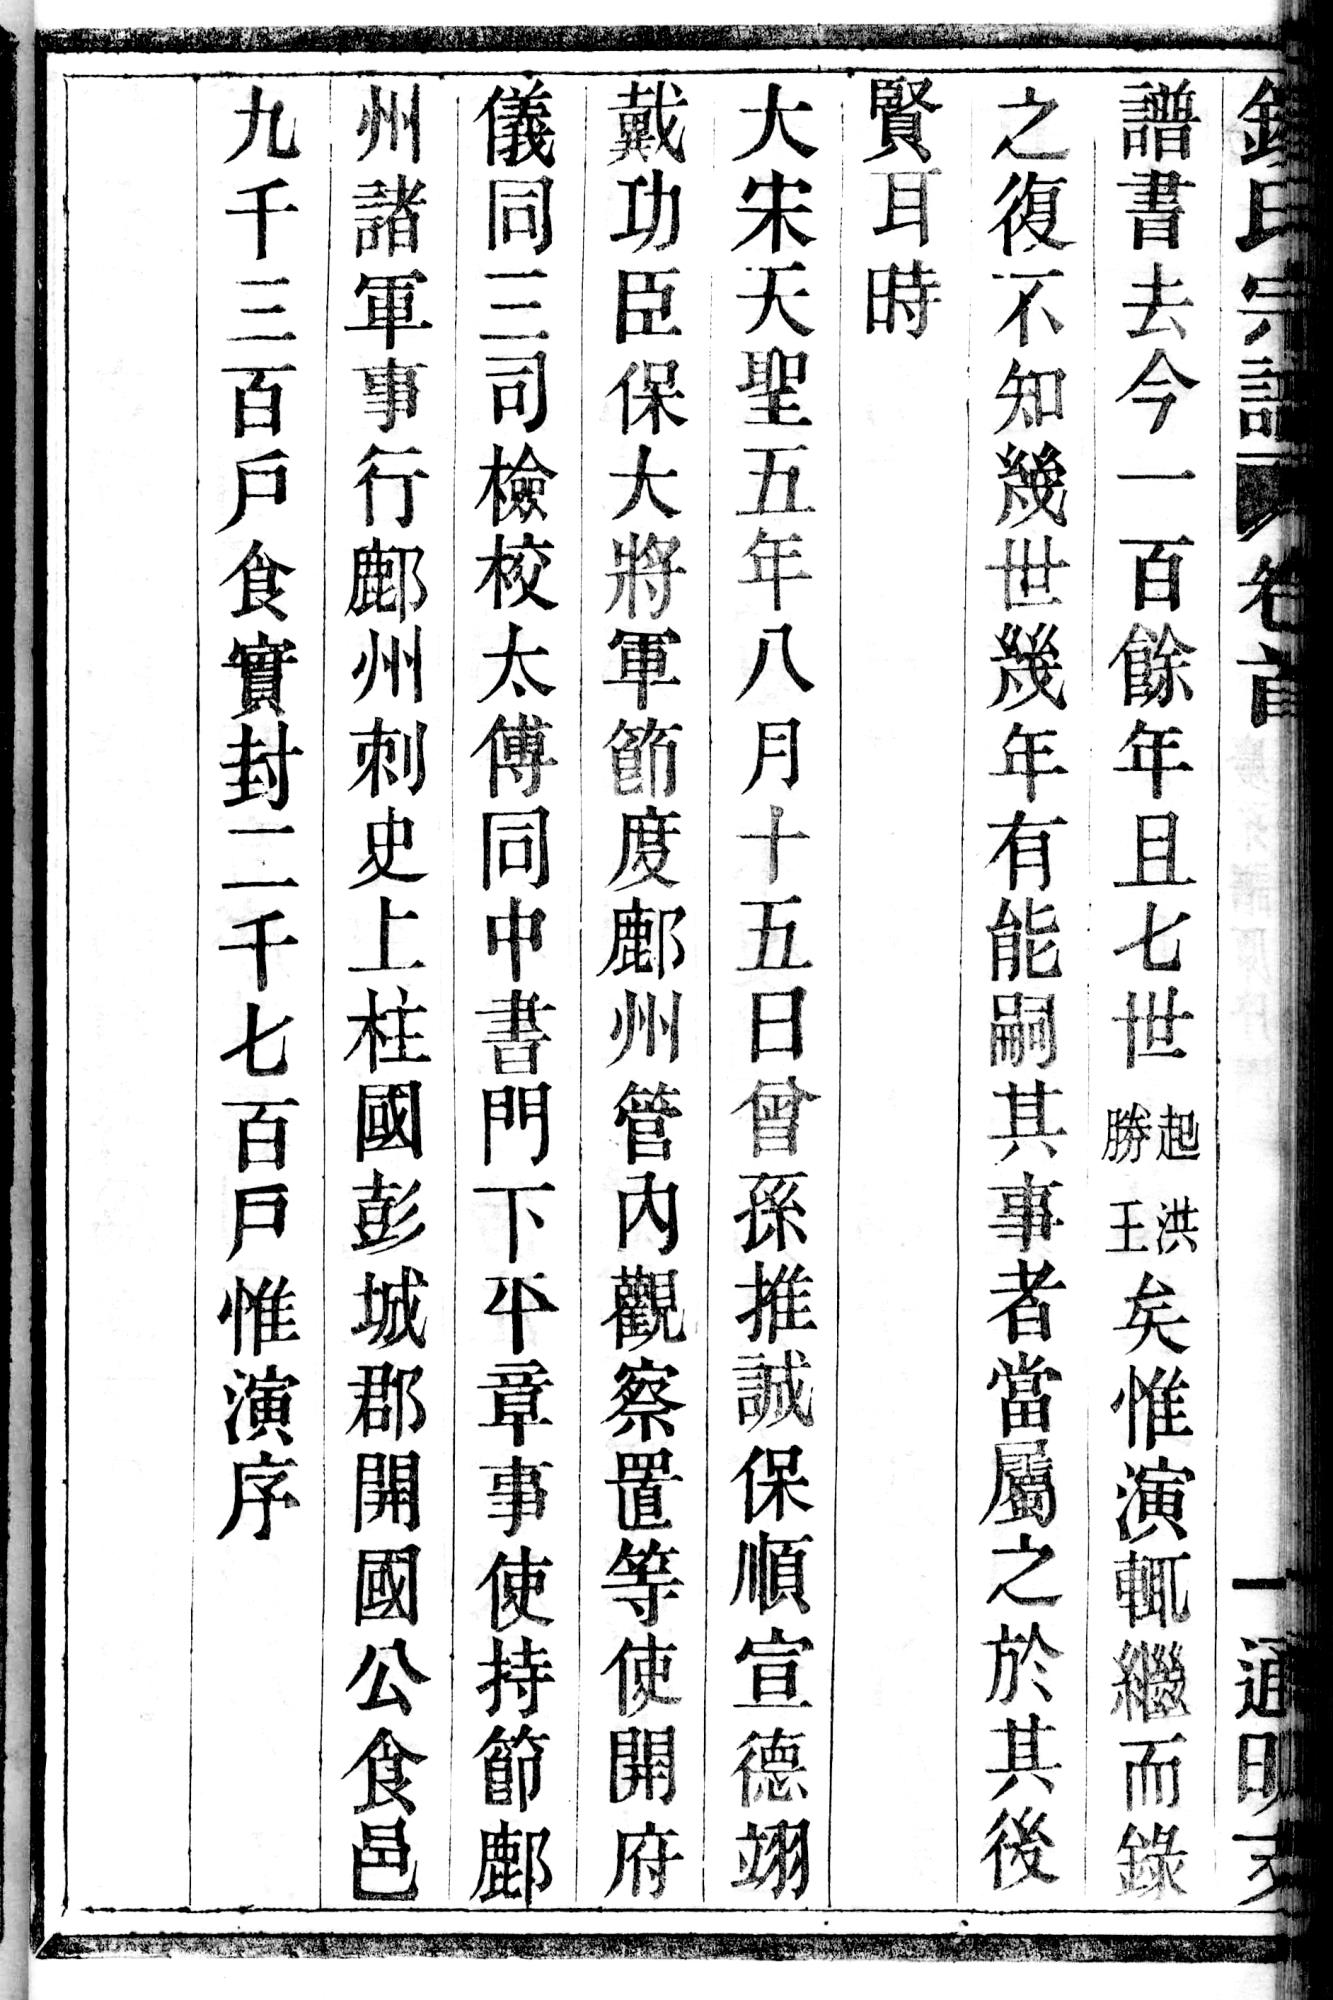 錢氏宗譜 卷首 一
譜書去今一百餘年且七世起洪勝王矣惟演輒繼而錄
之復不知幾世幾年有能嗣其事者當屬之於其後
賢耳時
大宋天聖五年八月十五日曾孫推誠保順宣德翊
戴功臣保大將軍節度鄜州管內觀察置等使開府
儀同三司檢校太傅同中書門下平章事使持節鄜
州諸軍事行鄜州刺史上柱國彭城郡開國公食邑
九千三百戶食實封二千七百戶惟演序